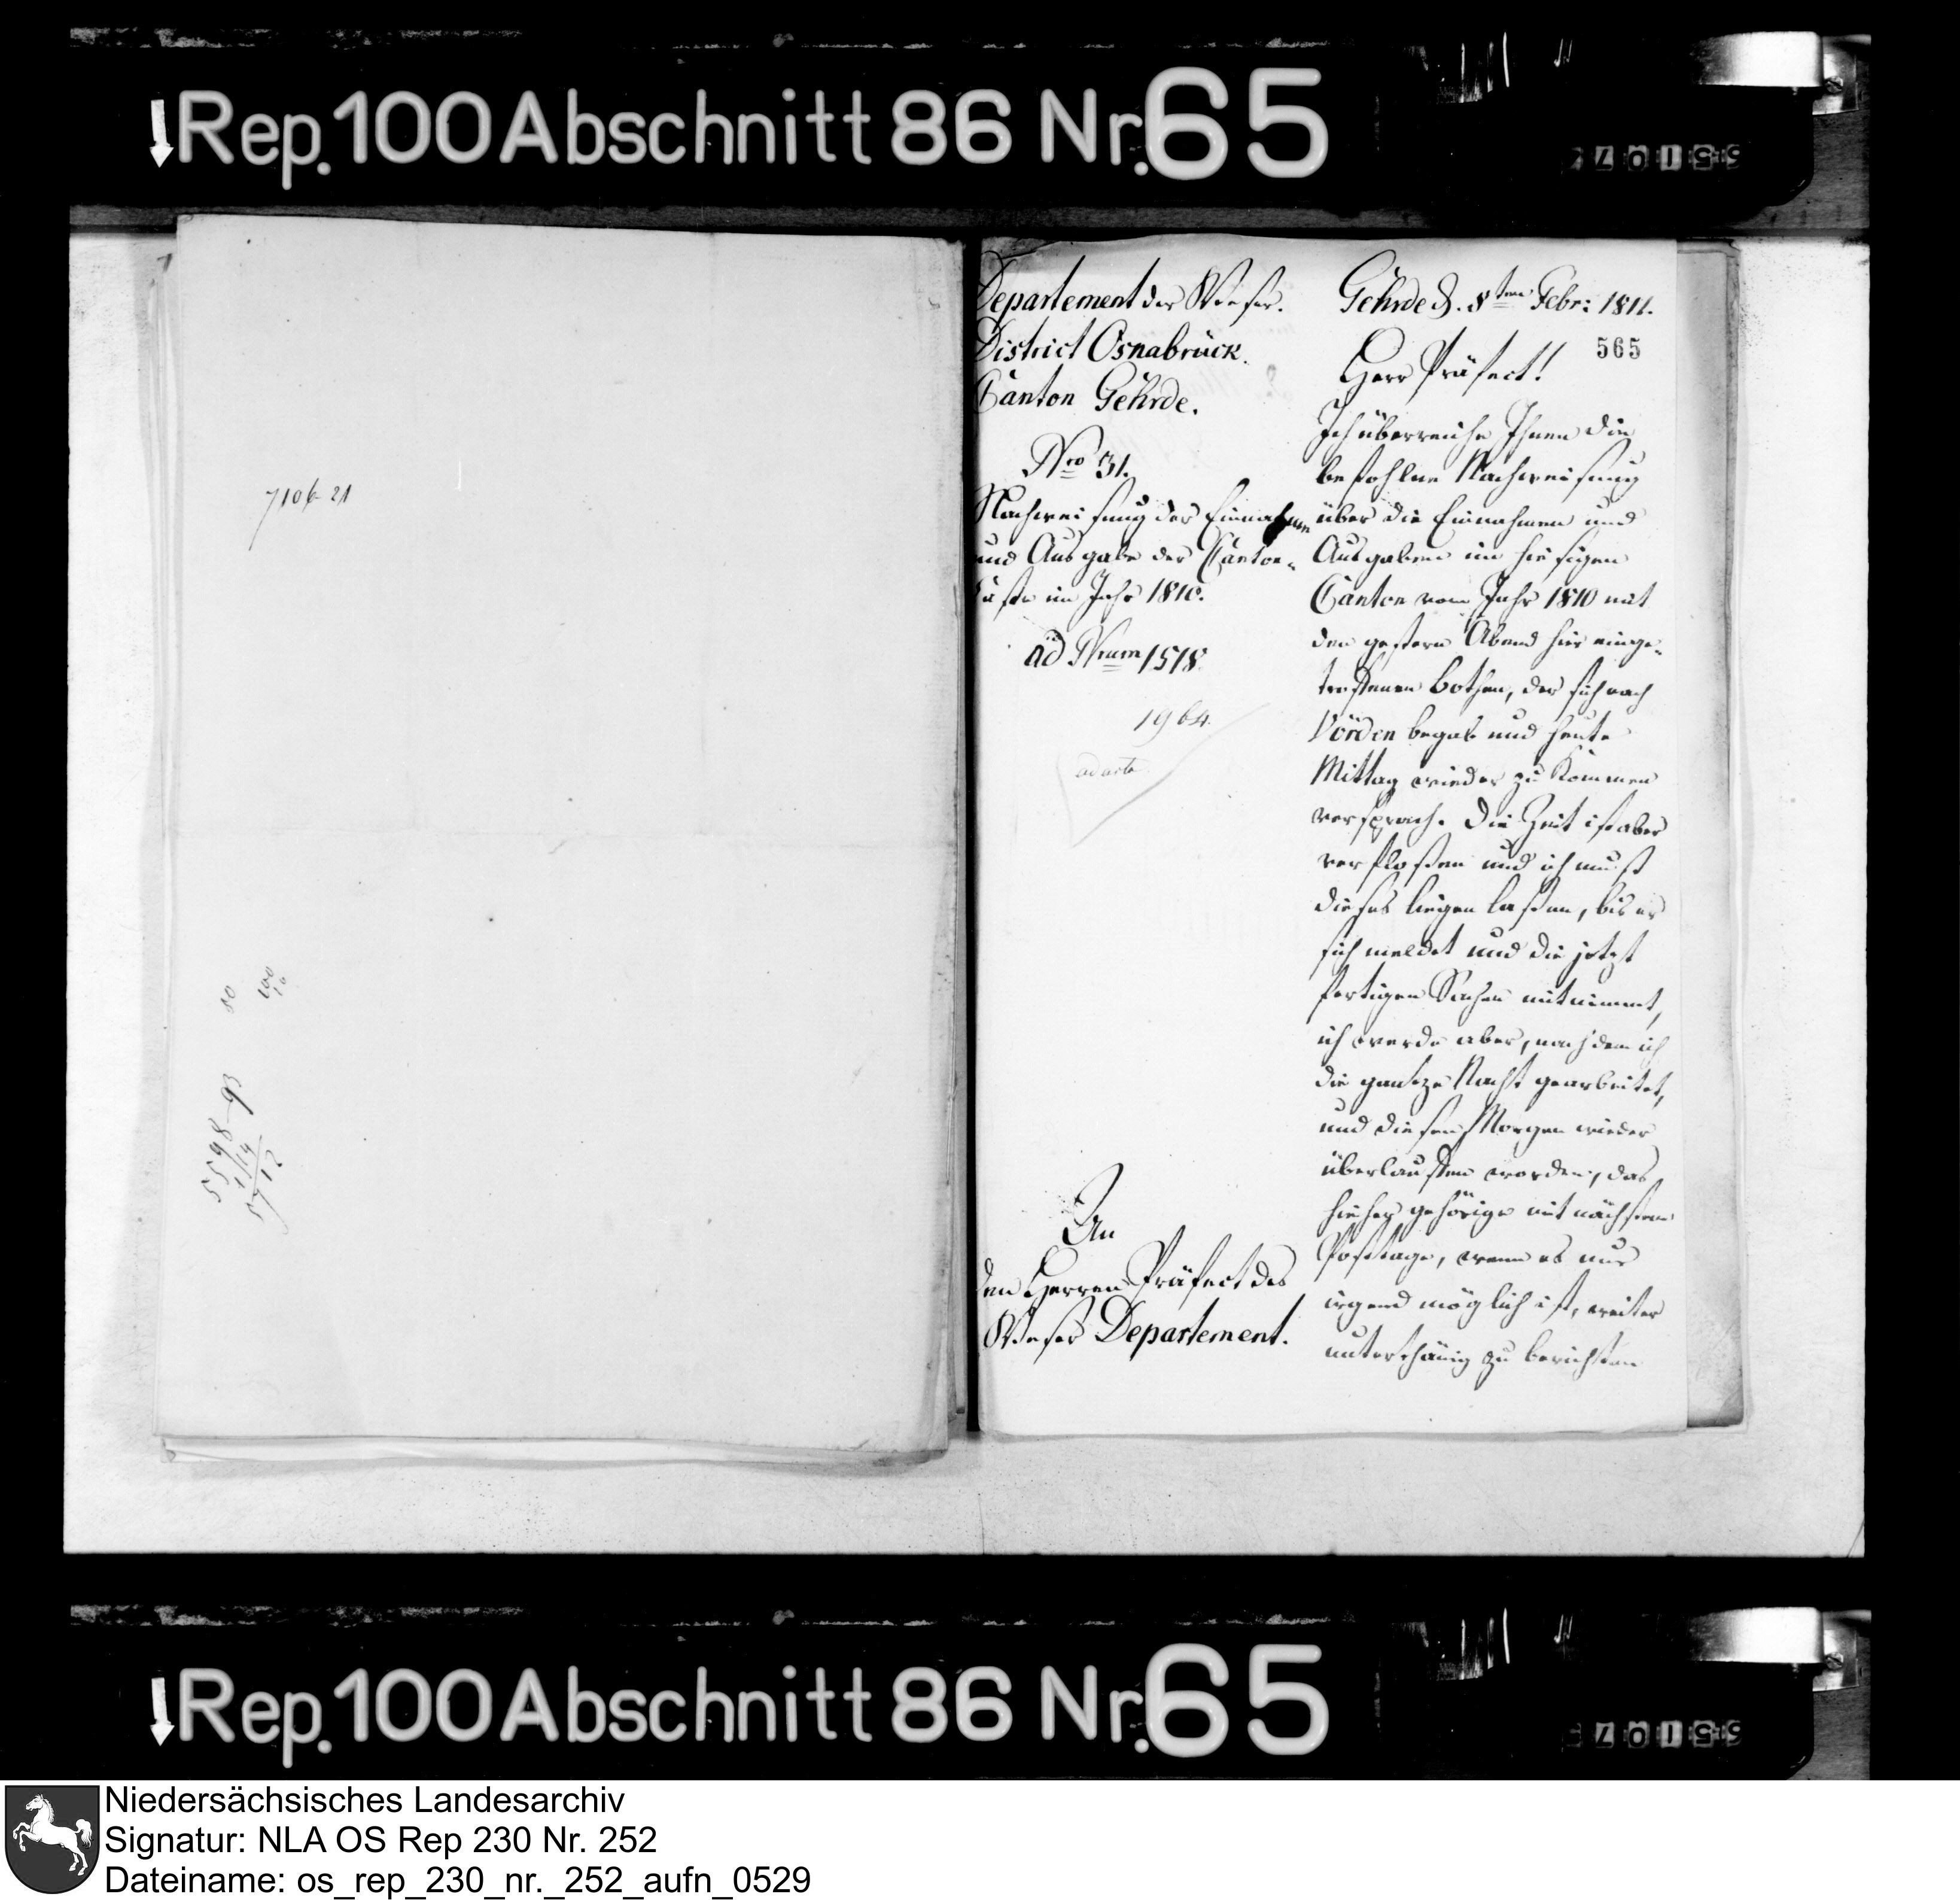 Rep. 100 Abschnitt 86 Nr. 65
7106 21
80
100
10
5598 93
114
5712
Departement der Weser.
District Osnabrück.
Canton Gehrde.
Nro 31.
Nachweisung der Einnahmen
und Ausgabe der Canton-
Casse im Jahr 1810.
ad Num 1518.
1964.
ad acta
An
den Herren Präfect des
Weser Departement.
Gehrde d. 8ten Febr: 1811.
565
Herr Präfect!
Ich überreiche Ihnen die
befohlne Nachweisung
über die Einnahmen und
Ausgaben im hiesigen
Canton vom Jahr 1810 mit
den gestern Abend hier einge-
troffenen Bothen, der sich nach
Vörden begab und heute
Mittag wieder zu kommen
versprach. Die Zeit ist aber
verfloßen und ich muß
dieses liegen laßen, bis er
sich meldet und die jetzt
fertigen Sachen mitnimmt,
ich werde aber, nachdem ich
die gantze Nacht gearbeitet,
und diesen Morgen wieder
überlauffen worden, das
hieher gehörige mit nächstem
Posttage, wenn es nur
irgend möglich ist, weiter
unterthänig zu berichten
Rep. 100 Abschnitt 86 Nr. 65
Niedersächsisches Landesarchiv
Signatur: NLA OS Rep 230 Nr. 252
Dateiname: os_rep_230_nr._252_aufn_0529